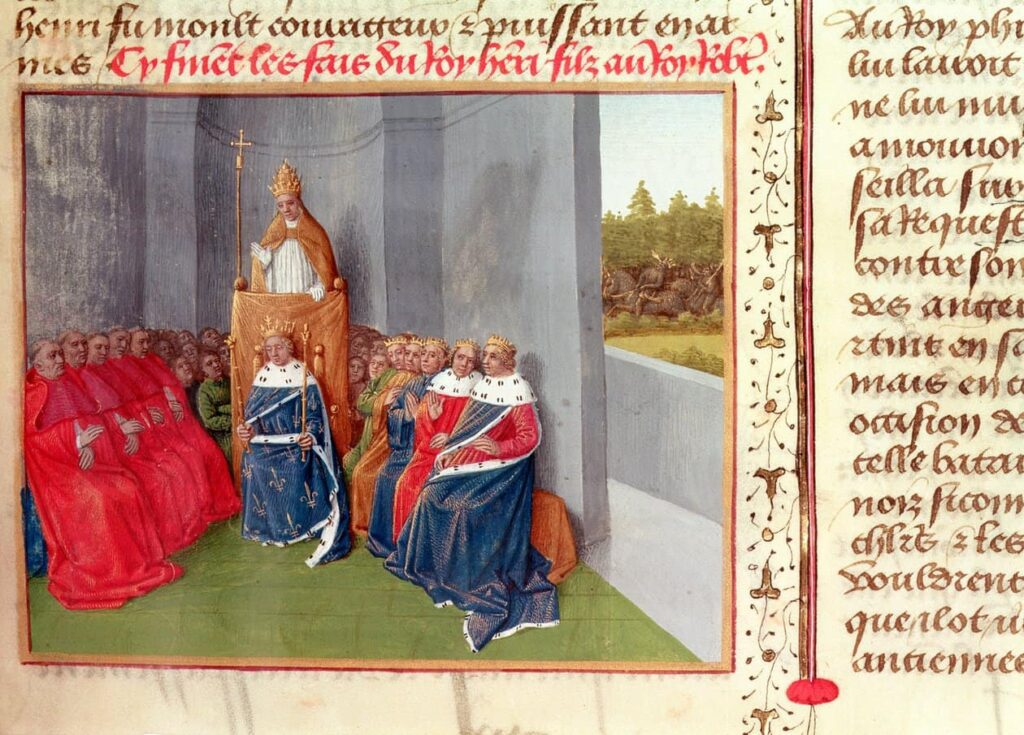 henri fu moult courageux & puissant en ar
mes Cy finēt les fais du Roy hēri filz au Roy Robt.
Au Roy phi
lui lavoit
ne lui mu
amouvoir
seilla
sa Request
contre son
des ange
en sa
mais en c
occasion de
telle batai
noiz sicom
chl̄rs & les
vouldrent
que ilot u
anciennes